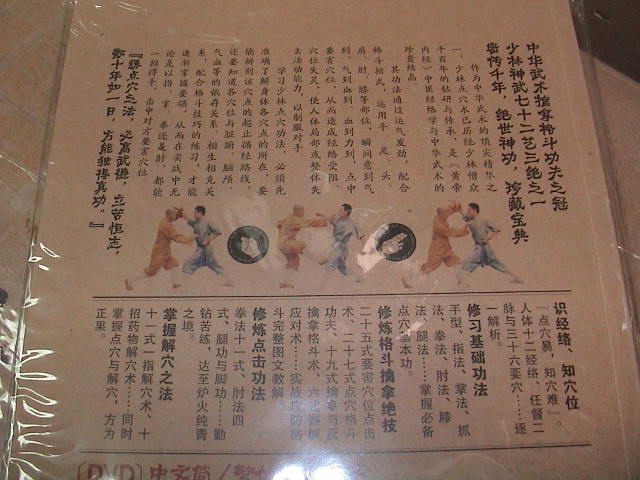 中华武术擒拿格斗功夫之冠
少林神武七十二艺三绝之一
密传千年，绝世神功，珍藏宝典
作为中华武术的顶尖精华之
一，少林点穴术已历经少林僧众
千百年的钻研与传承，是《黄帝
内经》中医经络学与中华武术的
珍贵结晶
其功法通过运气发劲，配合
格斗招式，运用手、足、头、
肩、肘、膝等部位，瞬间意到气
到，气到血到，血到力到，点中
要害穴位，从而造成经络受阻、
穴位失灵，使人体局部或整体失
去活动能力，以制服对手。
学习少林点穴功法，必须先
准确了解身体各穴点的所在，要
能辨别该穴点的起止循经路线，
还要知道各穴位与脏腑、脑颅、
气血等的依存关系，相生相克关
系，配合格斗技巧的练习，才能
逐渐掌握要领，从而在实战中无
论是以指、掌、拳还是肘，都能
一招得手，击中对方要害穴位。
『赚点穴之法，必富武德，立苦恒志，
数十年如一日，方能独得真功。』
识经络、知穴位
『点穴易，知穴难』。
人体十二经络、任督二
脉与三十六要穴……逐
一解析。
修习基础功法
手型、指法、掌法、抓
法、拳法、肘法、膝
法、腿法……掌握必备
点穴基本功。
修炼格斗擒拿绝技
二十五式要害穴位点击
术、二十七式点穴格斗
功夫、十九式擒拿与反
擒拿格斗术、六式器械
应对术……实战攻防格
斗完整图文教解。
修炼点击功法
拳法十一式、肘法四
式、腿功与脚功……勤
钻苦练，达至炉火纯青
之境。
掌握解穴之法
十一式一指解穴术、十
招药物解穴术……同时
掌握点穴与解穴，方为
正果。
[DVD] 中文简/繁